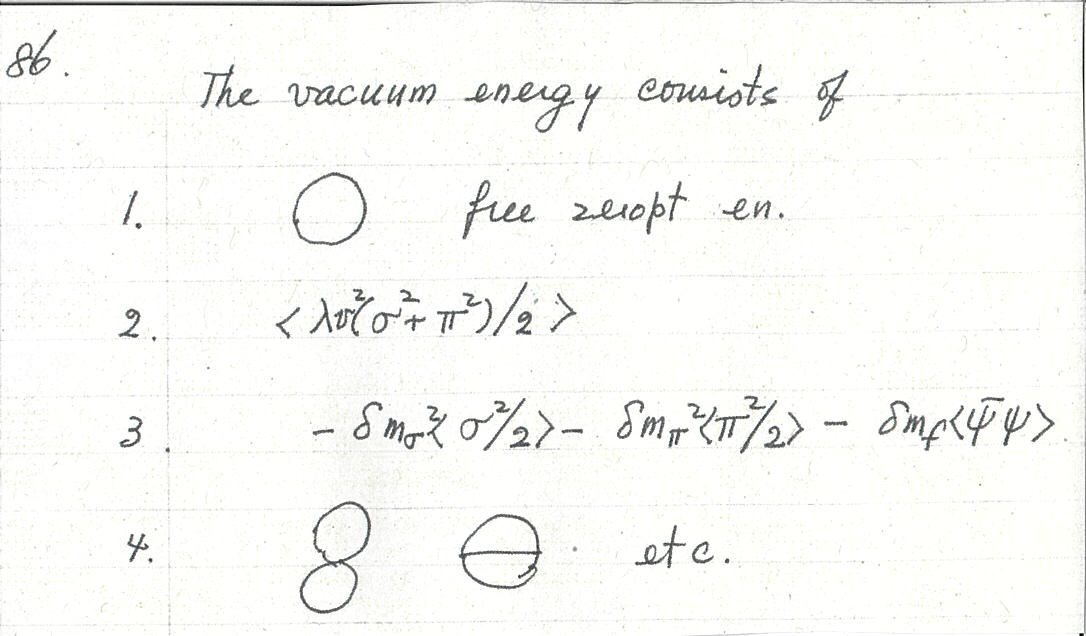 86.
The vacuum energy consists of
1. free zeropt en.
2. < λv²(σ² + π²)/2 >
3. - δmσ²< σ²/2> - δmπ²<π²/2> - δm_f<ψ̄ψ>
4. etc.